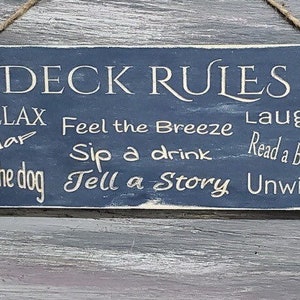 DECK RULES
LAX Feel the Breeze Laug
Sip a drink Read a B
he dog Tell a Story Unwi